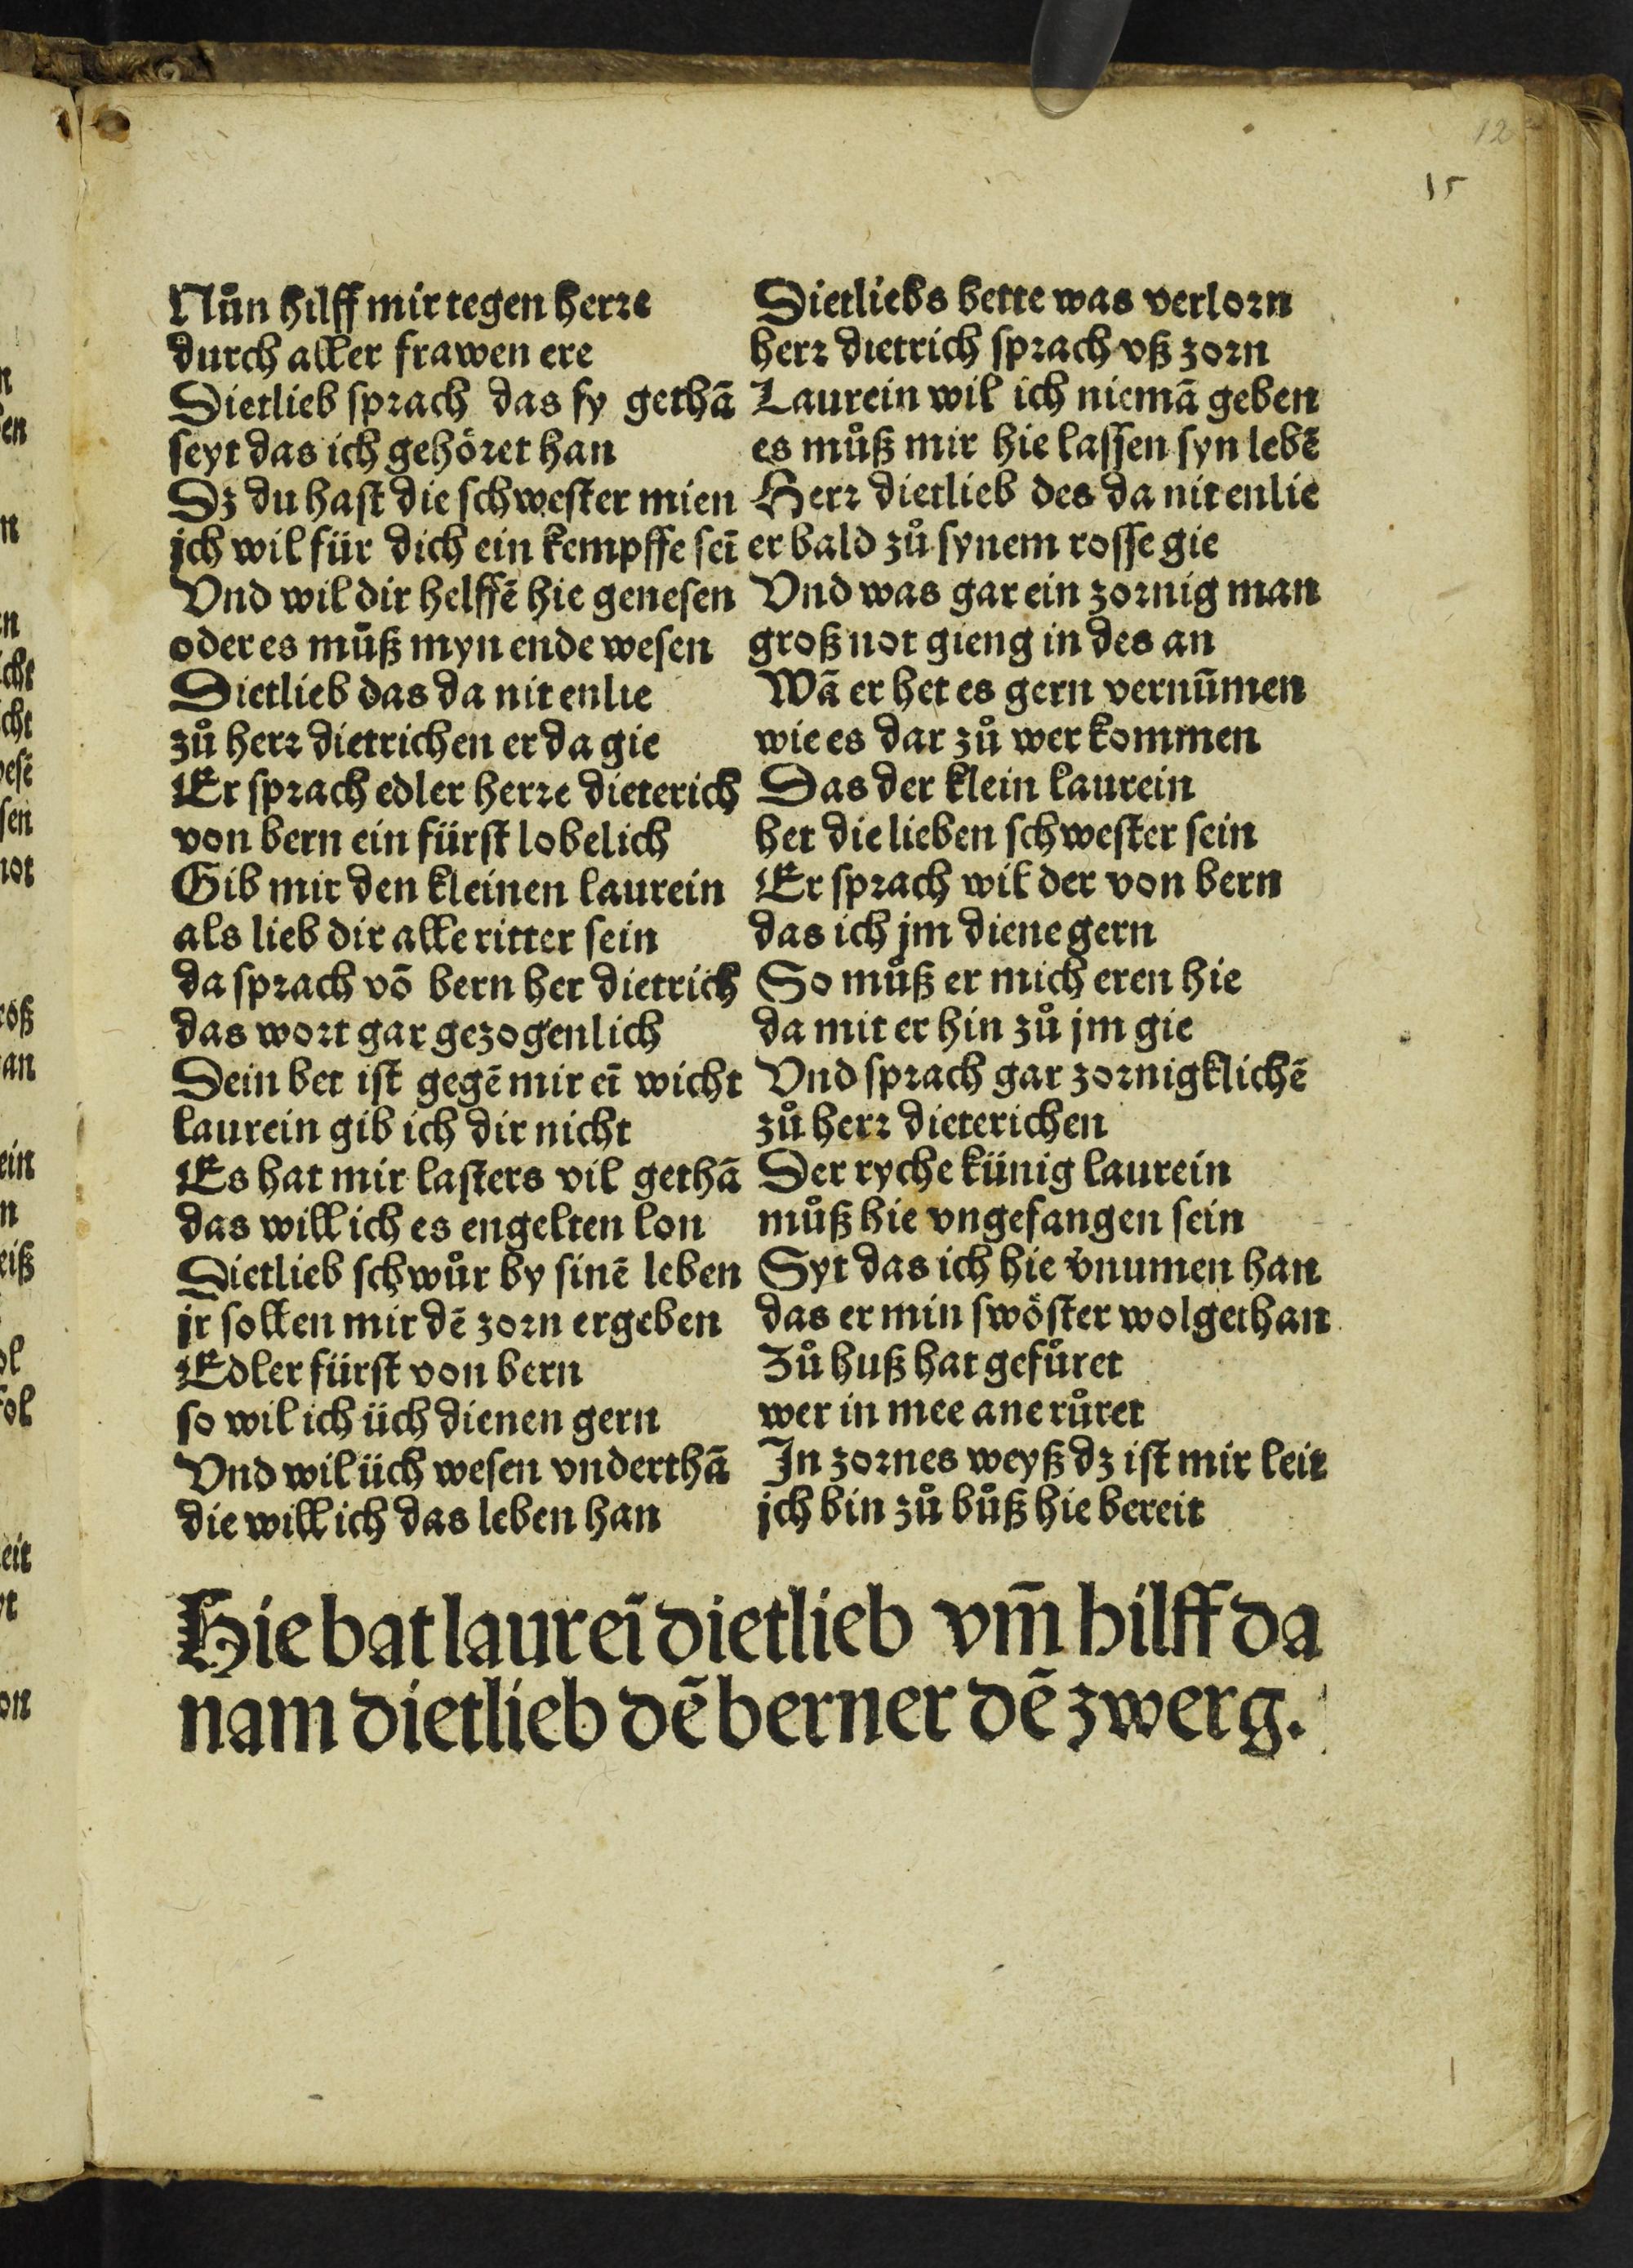 12
15
Nůn hilff mir tegen herre
durch aller frawen ere
Dietlieb sprach das sy gethā
seyt das ich gehöret han
Dz du hast die schwester mien
jch wil für dich ein kempffe seī
Vnd wil dir helffē hie genesen
oder es můß myn ende wesen
Dietlieb das da nit enlie
zů herr dietrichen er da gie
Er sprach edler herre dieterich
von bern ein fürst lobelich
Gib mir den kleinen laurein
als lieb dir alle ritter sein
da sprach vō bern her dietrich
das wort gar gezogenlich
Dein bet ist gegē mir eī wicht
laurein gib ich dir nicht
Es hat mir lasters vil gethā
das will ich es engelten lon
Dietlieb schwůr by sinē leben
jr sollen mir dē zorn ergeben
Edler fürst von bern
so wil ich üch dienen gern
Vnd wil üch wesen vnderthā
die will ich das leben han
Dietliebs bette was verlorn
herr dietrich sprach vß zorn
Laurein wil ich niemā geben
es můß mir hie lassen syn lebē
Herr dietlieb des da nit enlie
er bald zů synem rosse gie
Vnd was gar ein zornig man
groß not gieng in des an
Wā er het es gern vernūmen
wie es dar zů wer kommen
Das der klein laurein
het die lieben schwester sein
Er sprach wil der von bern
das ich jm diene gern
So můß er mich eren hie
da mit er hin zů jm gie
Vnd sprach gar zornigklichē
zů herr dieterichen
Der ryche künig laurein
můß hie vngefangen sein
Syt das ich hie v̄numen han
das er min swöster wolgethan
Zů huß hat gefůret
wer in mee ane růret
In zornes weyß dz ist mir leit
jch bin zů bůß hie bereit
Hie bat laureī dietlieb vm̄ hilff da
nam dietlieb dē berner dē zwerg.